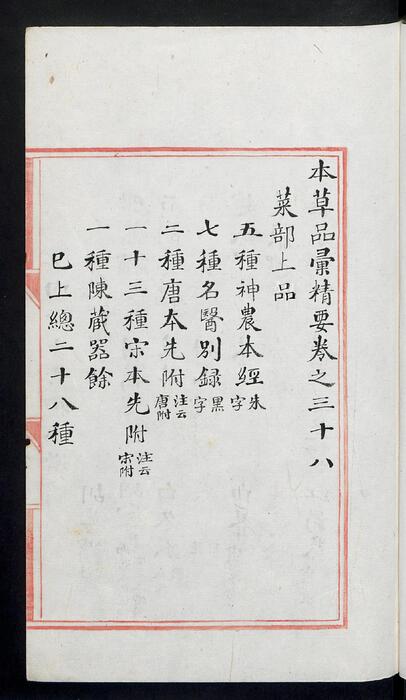 本草品彙精要卷之三十八
菜部上品
五種神農本經朱字
七種名醫別録黑字
二種唐本先附注云唐附
一十三種宋本先附注云宋附
一種陳蔵器餘
已上總二十八種